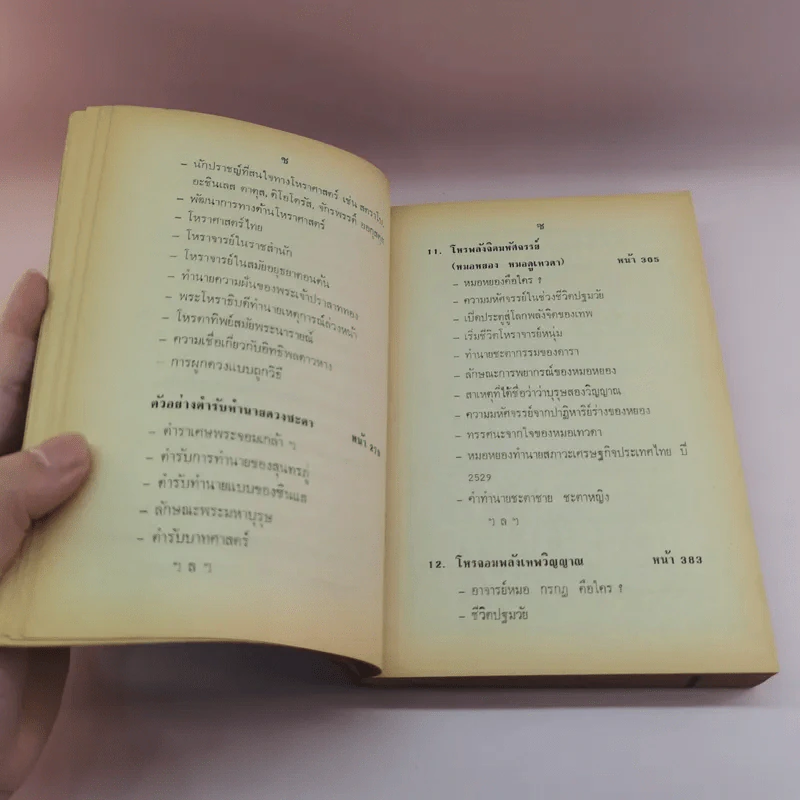 ช
– นักปราชญ์ที่สนใจทางโหราศาสตร์ เช่น
– พัฒนาการทางด้านโหราศาสตร์
– โหราศาสตร์ไทย
– โหราจารย์ในราชสำนัก
– โหราจารย์ในสมัยอยุธยาตอนต้น
– ทำนายความฝันของพระเจ้าปราสาททอง
– พระโหราธิบดีทำนายเหตุการณ์ล่วงหน้า
– โหรตาทิพย์สมัยพระนารายณ์
– ความเชื่อเกี่ยวกับอิทธิพลดาวหาง
– การผูกดวงแบบถูกวิธี
ตัวอย่างตำรับทำนายดวงชะตา หน้า
– ตำราเศษพระจอมเกล้า ฯ
– ตำรับการทำนายของสุนทรภู่
– ตำรับทำนายแบบของซินแส
– ลักษณะพระมหาบุรุษ
– ตำรับบาทศาสตร์
ฯ ล ฯ
ซ
11. โหรพลังจิตมหัศจรรย์
(หมอหยอง หมอดูเทวดา) หน้า 305
– หมอหยองคือใคร ?
– ความมหัศจรรย์ในช่วงชีวิตปฐมวัย
– เปิดประตูสู่โลกพลังจิตของเทพ
– เริ่มชีวิตโหราจารย์หนุ่ม
– ทำนายชะตากรรมของดารา
– ลักษณะการพยากรณ์ของหมอหยอง
– สาเหตุที่ได้ชื่อว่าบุรุษสองวิญญาณ
– ความมหัศจรรย์จากปาฏิหาริย์ร่างของหยอง
– ทรรศนะจากใจของหมอเทวดา
– หมอหยองทำนายสภาวะเศรษฐกิจประเทศไทย ปี
2529
– คำทำนายชะตาชาย ชะตาหญิง
ฯ ล ฯ
12. โหรจอมพลังเทพวิญญาณ หน้า 383
– อาจารย์หมอ กรกฎ คือใคร ?
– ชีวิตปฐมวัย